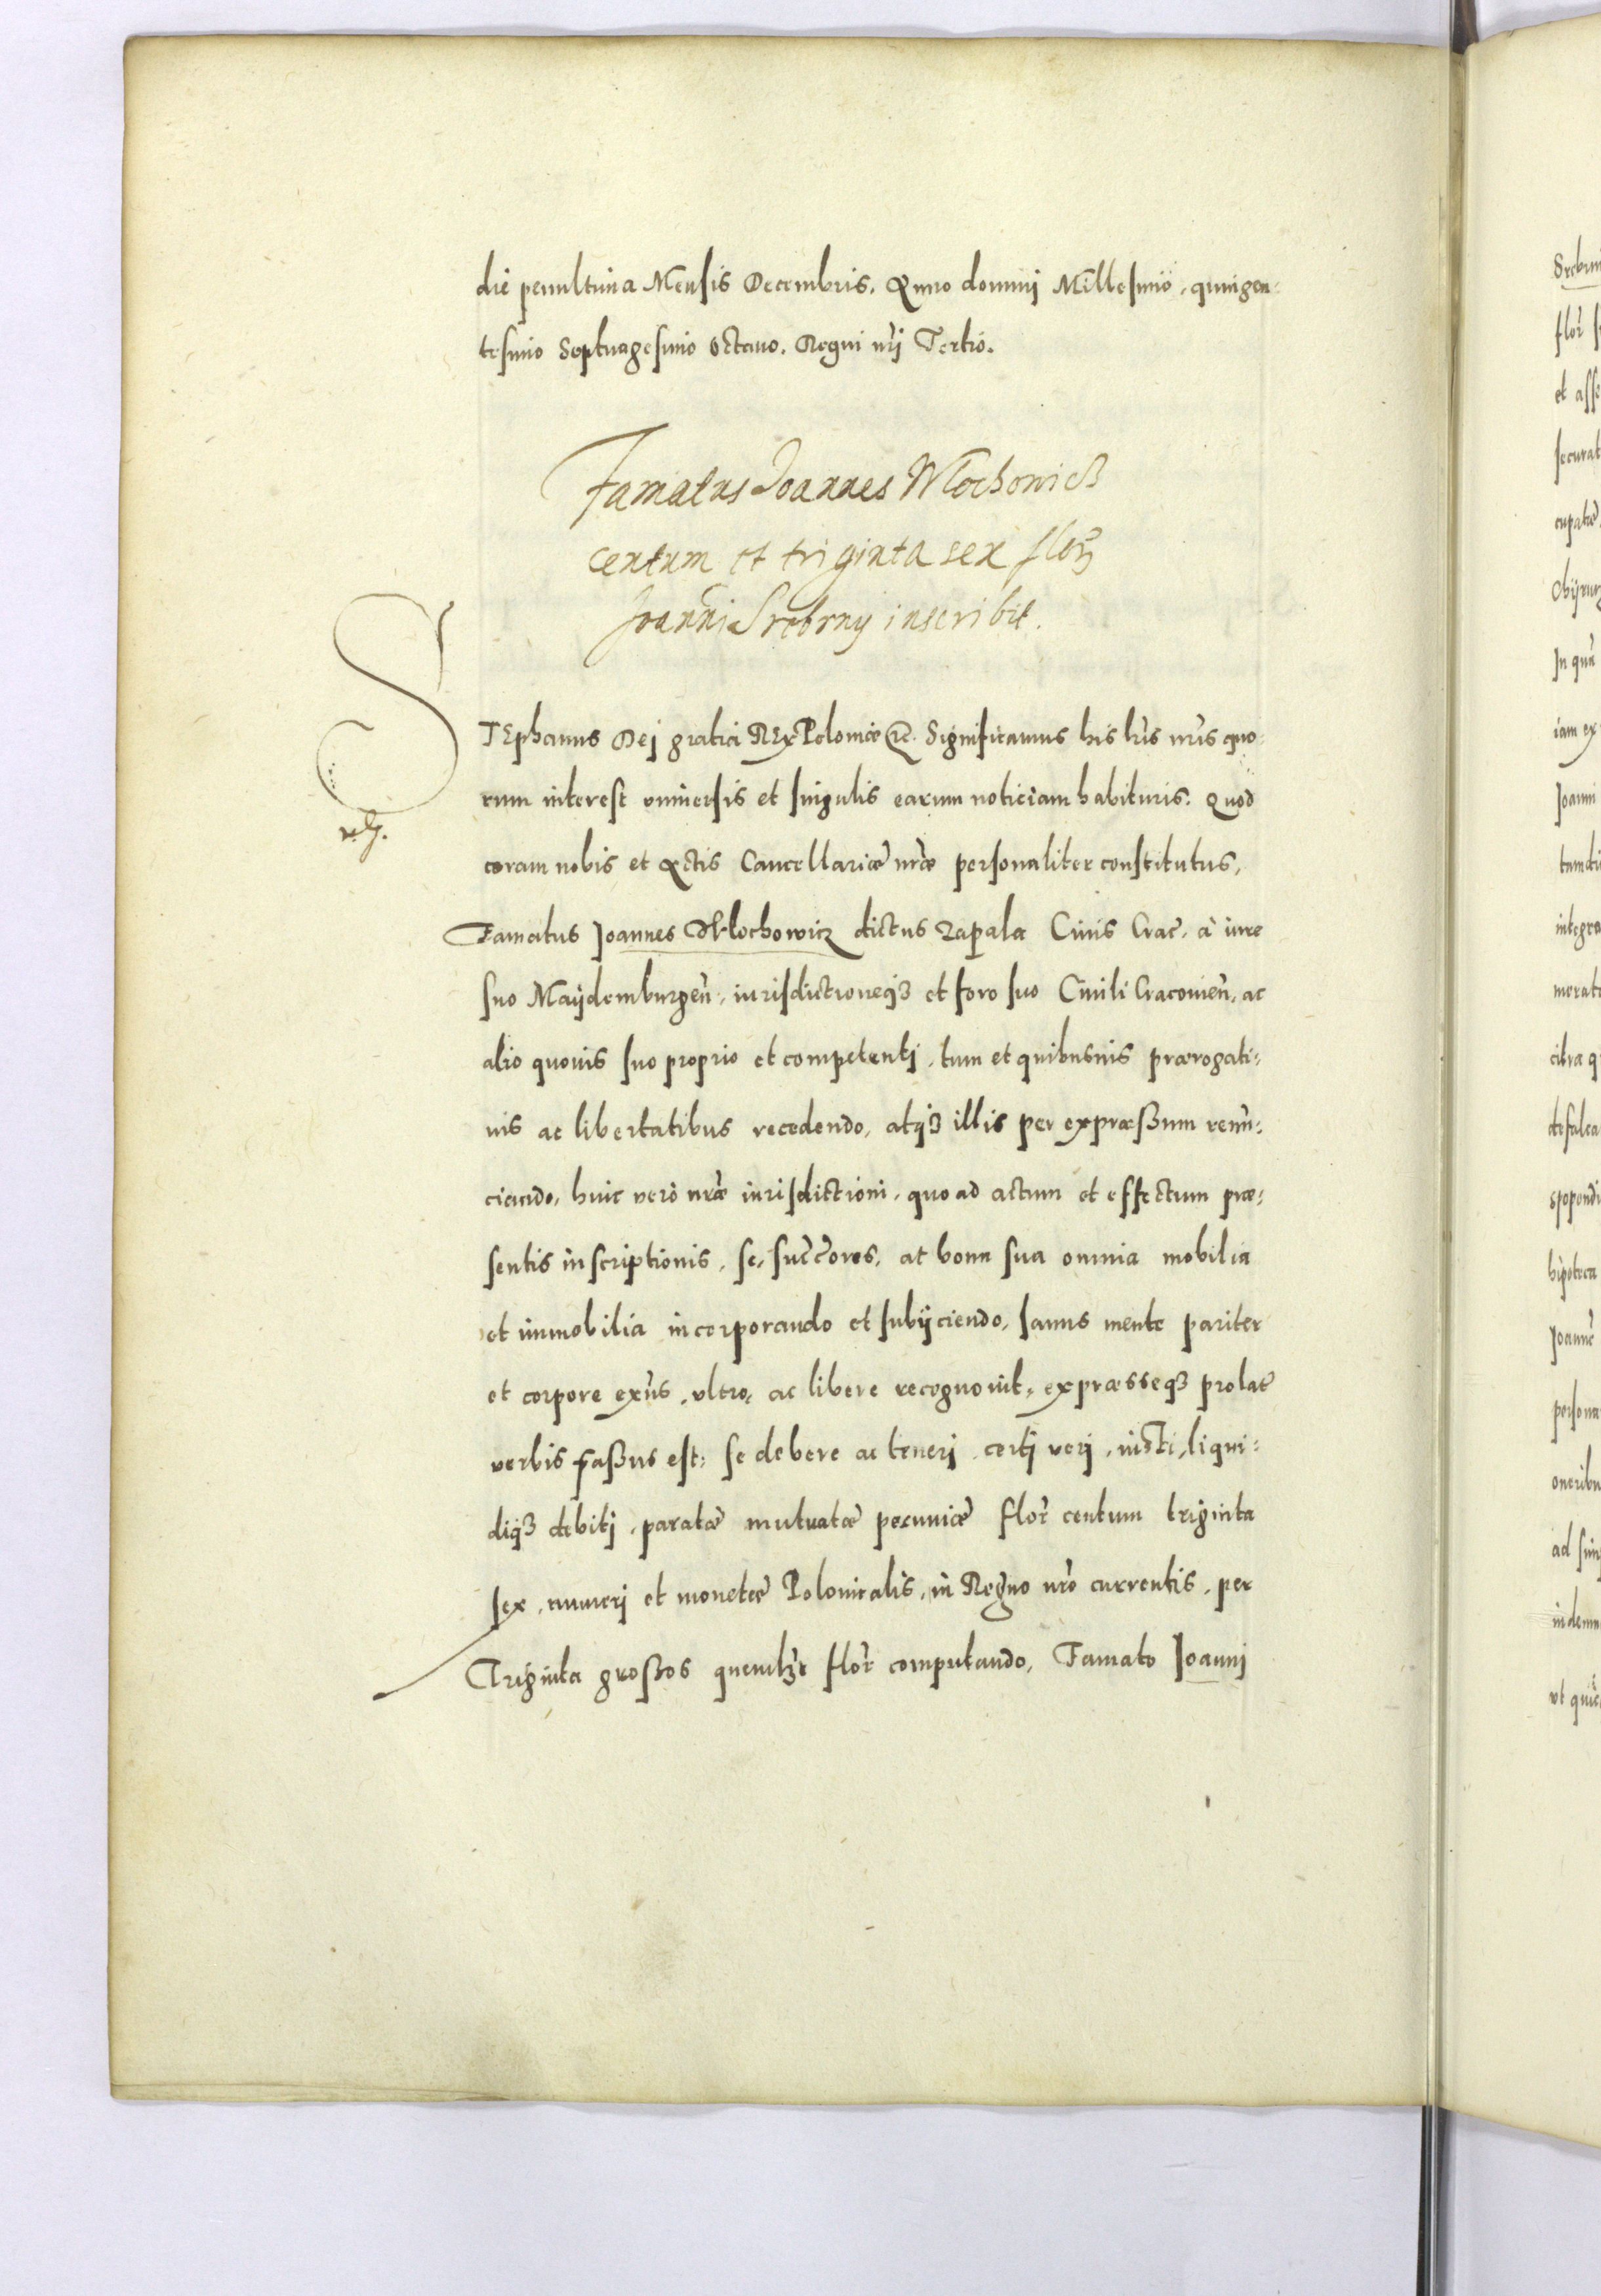 die penultima Mensis Decembris, Anno dominj Millesimo, quingen:
tesimo Septuagesimo Octauo. Regni nr̃j Tertio.
Famatus Joannes Wlochowicz
centum et triginta sex flor̃
Joanni Srebrny inscribit.
STEphanus Dej gratia REx Poloniæ &c. Significamus his lr̃is nr̃is quo:
rum interest vniuersis et singulis earum noticiam habituris. Quod
coram nobis et Actis Cancellariæ nr̃æ personaliter constitutus,
Famatus Joannes Wlochowicz dictus Zapala Ciuis Crac̃, à iure
suo Maÿdemburgeñ, iurisdictioneq3 et foro suo Ciuili Cracouieñ, ac
alio quouis suo proprio et competentj, tum et quibusuis prærogati:
uis ac libertatibus recedendo, atq3 illis per expræßum renũ:
ciando, huic verò nr̃æ iurisdictioni, quo ad actum et effectum præ:
sentis inscriptionis, se, succ̃ores, ac bona sua omnia mobilia
et immobilia incorporando et subÿciendo, sanus mente pariter
et corpore exñs, vltro, ac libere recognouit, expræsseq3 prolat̃
verbis faßus est: se debere ac tenerj certj verj, iusti, liqui:
diq3 debitj, paratæ mutuatæ pecuniæ flor̃ centum triginta
sex, numerj et monetæ Polonicalis, in Regno nr̃o currentis, per
Triginta großos quemlĩ3t flor̃ computando, Famato Joannj
Srebrn
flor̃ s
et asse
securat
cupatæ
Chÿrur
In quã
iam ex
Joanni
integra
citra q
defalca
spopondi
hipoteca
Joannẽ
persona
oneribu
ad sing
indemn